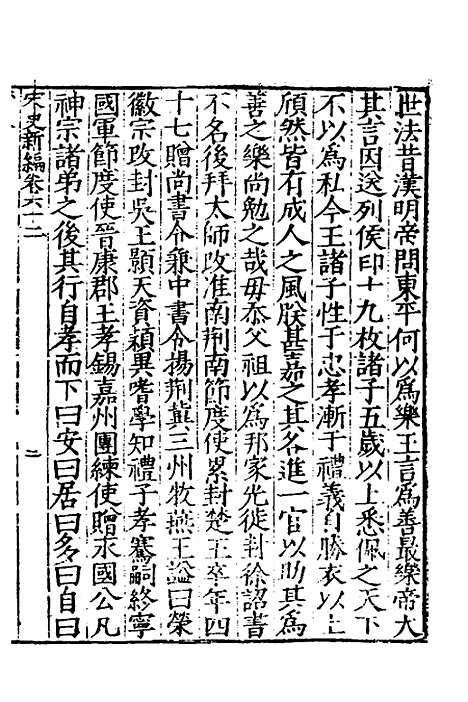 世法昔漢明帝問東平何以爲樂王言爲善最樂帝大
其言因送列侯印十九枚諸子五歲以上悉佩之天下
不以爲私今王諸子性于忠孝漸于禮義自勝衣以上
頎然皆有成人之風朕甚嘉之其各進一官以助其爲
善之樂尚勉之哉毋忝父祖以爲邦家光徙封徐詔書
不名後拜太師改淮南荆南節度使累封楚王卒年四
十七贈尚書令兼中書令揚荆冀三州牧燕王謚曰榮
徽宗改封吳王顥天資頴異嗜學知禮子孝騫嗣終寧
國軍節度使晉康郡王孝錫嘉州團練使贈永國公凡
神宗諸弟之後其行自孝而下曰安曰居曰多曰自曰
宋史新編卷六十二
二